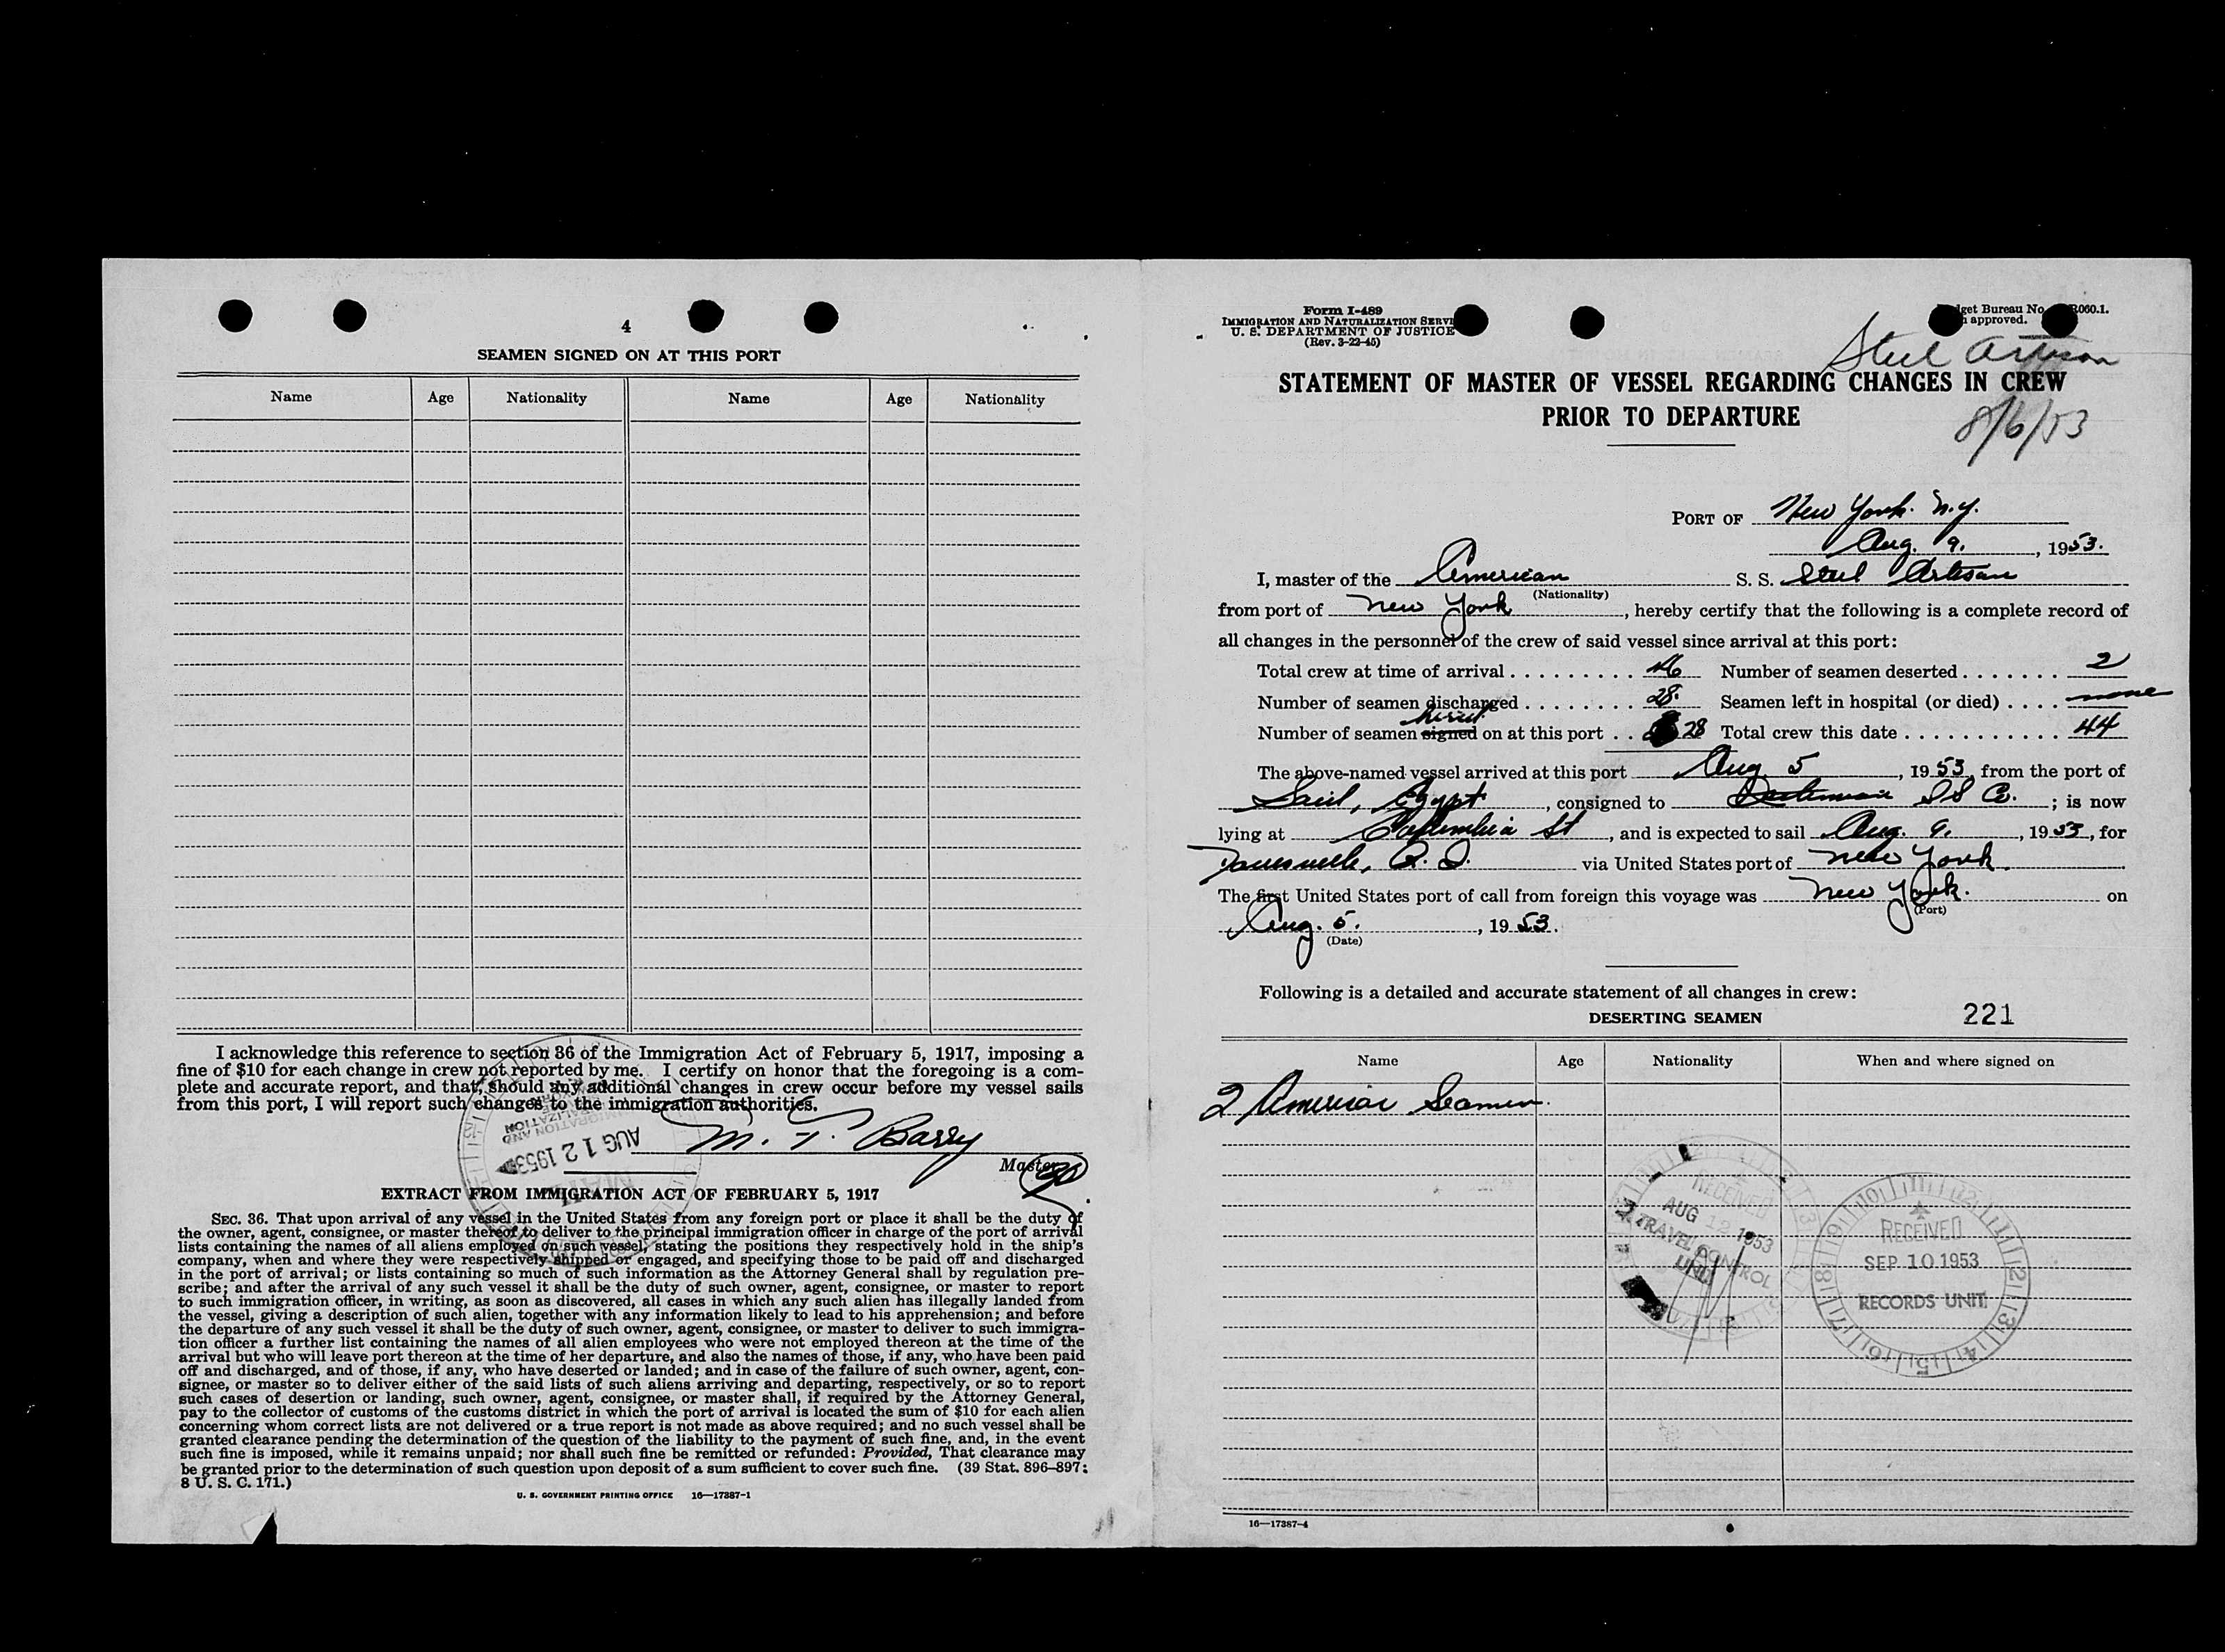 4
SEAMEN SIGNED ON AT THIS PORT
Name Age Nationality Name Age Nationality
I acknowledge this reference to section 36 of the Immigration Act of February 5, 1917, imposing a
fine of $10 for each change in crew not reported by me. I certify on honor that the foregoing is a com-
plete and accurate report, and that, should any additional changes in crew occur before my vessel sails
from this port, I will report such changes to the immigration authorities.
AUG 12 1953
M. T. Barry
Master
EXTRACT FROM IMMIGRATION ACT OF FEBRUARY 5, 1917
SEC. 36. That upon arrival of any vessel in the United States from any foreign port or place it shall be the duty of
the owner, agent, consignee, or master thereof to deliver to the principal immigration officer in charge of the port of arrival
lists containing the names of all aliens employed on such vessel, stating the positions they respectively hold in the ship's
company, when and where they were respectively shipped or engaged, and specifying those to be paid off and discharged
in the port of arrival; or lists containing so much of such information as the Attorney General shall by regulation pre-
scribe; and after the arrival of any such vessel it shall be the duty of such owner, agent, consignee, or master to report
to such immigration officer, in writing, as soon as discovered, all cases in which any such alien has illegally landed from
the vessel, giving a description of such alien, together with any information likely to lead to his apprehension; and before
the departure of any such vessel it shall be the duty of such owner, agent, consignee, or master to deliver to such immigra-
tion officer a further list containing the names of all alien employees who were not employed thereon at the time of the
arrival but who will leave port thereon at the time of her departure, and also the names of those, if any, who have been paid
off and discharged, and of those, if any, who have deserted or landed; and in case of the failure of such owner, agent, con-
signee, or master so to deliver either of the said lists of such aliens arriving and departing, respectively, or so to report
such cases of desertion or landing, such owner, agent, consignee, or master shall, if required by the Attorney General,
pay to the collector of customs of the customs district in which the port of arrival is located the sum of $10 for each alien
concerning whom correct lists are not delivered or a true report is not made as above required; and no such vessel shall be
granted clearance pending the determination of the question of the liability to the payment of such fine, and, in the event
such fine is imposed, while it remains unpaid; nor shall such fine be remitted or refunded: Provided, That clearance may
be granted prior to the determination of such question upon deposit of a sum sufficient to cover such fine. (39 Stat. 896–897;
8 U. S. C. 171.)
U. S. GOVERNMENT PRINTING OFFICE 16—17387-1
Form I-489
IMMIGRATION AND NATURALIZATION SERVI
U. S. DEPARTMENT OF JUSTICE
(Rev. 3-22-45)
get Bureau No. R060.1.
approved.
Steel Artisan
STATEMENT OF MASTER OF VESSEL REGARDING CHANGES IN CREW
PRIOR TO DEPARTURE
8/6/53
PORT OF New York. N.Y.
Aug. 9. , 1953.
I, master of the American S. S. Steel Artisan
(Nationality)
from port of New York , hereby certify that the following is a complete record of
all changes in the personnel of the crew of said vessel since arrival at this port:
Total crew at time of arrival . . . . . . . . . 46 Number of seamen deserted . . . . . . . 2
Number of seamen discharged . . . . . . . . 28. Seamen left in hospital (or died) . . . . none
hired
Number of seamen signed on at this port . . 28 Total crew this date . . . . . . . . . . . 44
The above-named vessel arrived at this port Aug. 5 , 1953, from the port of
Said, Egypt , consigned to SS Co. ; is now
lying at Columbia St , and is expected to sail Aug. 9. , 1953, for
via United States port of New York.
The first United States port of call from foreign this voyage was New York. on
(Port)
Aug. 5. , 1953.
(Date)
Following is a detailed and accurate statement of all changes in crew:
DESERTING SEAMEN 221
Name Age Nationality When and where signed on
2 American Seamen.
RECEIVED
AUG 12 1953
TRAVEL CONTROL
UNIT
RECEIVED
SEP 10 1953
RECORDS UNIT
16—17387-4